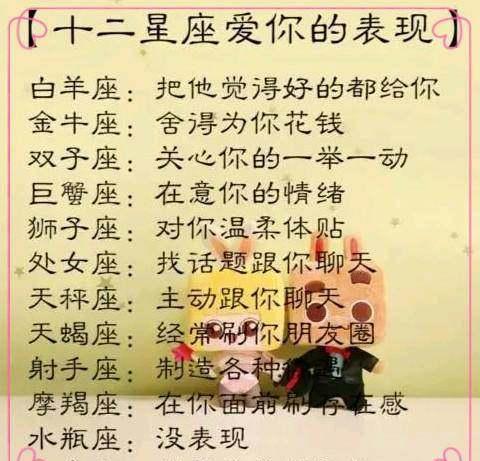 【十二星座爱你的表现】
白羊座：把他觉得好的都给你
金牛座：舍得为你花钱
双子座：关心你的一举一动
巨蟹座：在意你的情绪
狮子座：对你温柔体贴
处女座：找话题跟你聊天
天秤座：主动跟你聊天
天蝎座：经常刷你朋友圈
射手座：制造各种
摩羯座：在你面前刷存在感
水瓶座：没表现